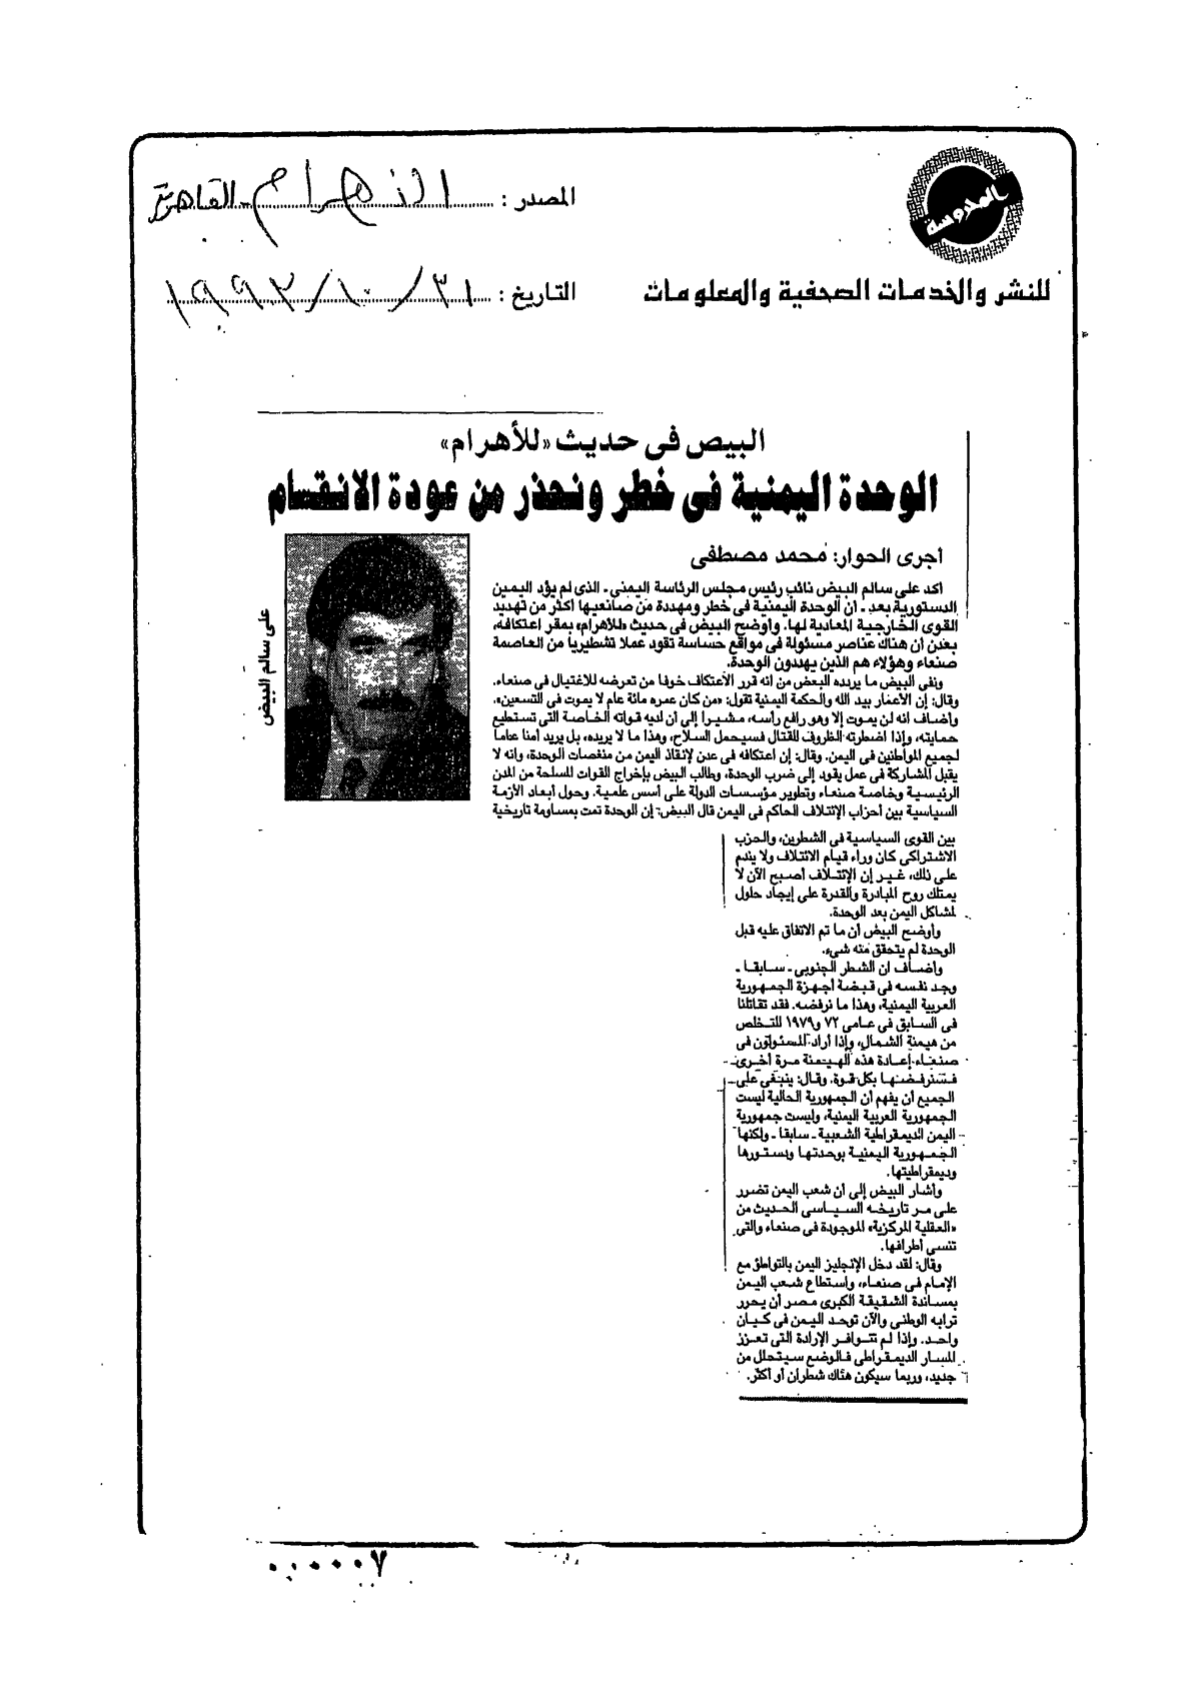 المحروسة
للنشر والخدمات الصحفية والمعلومات
المصدر : الأهرام - القاهرة
التاريخ : ٣١/١٠/١٩٩٣
البيض فى حديث «للأهرام»
الوحدة اليمنية فى خطر ونحذر من عودة الانقسام
أجرى الحوار: محمد مصطفى
على سالم البيض
اكد على سالم البيض نائب رئيس مجلس الرئاسة اليمنى ـ الذى لم يؤد اليمين
الدستورية بعد ـ أن الوحدة اليمنية فى خطر ومهددة من صانعيها اكثر من تهديد
القوى الخارجية المعادية لها. وأوضح البيض فى حديث «للأهرام» بمقر اعتكافه،
بعدن أن هناك عناصر مسئولة فى مواقع حساسة تقود عملا تشطيريا من العاصمة
صنعاء وهؤلاء هم الذين يهددون الوحدة.
ونفى البيض ما يردده البعض من انه قرر الأعتكاف خوفا من تعرضه للاغتيال فى صنعاء.
وقال: إن الأعمار بيد الله والحكمة اليمنية تقول: «من كان عمره مائة عام لا يموت فى التسعين».
وأضاف انه لن يموت إلا وهو رافع رأسه، مشيرا إلى أن لديه قواته الخاصة التى تستطيع
حمايته، وإذا اضطرته الظروف للقتال فسيحمل السلاح، وهذا ما لا يريده، بل يريد أمنا عاما
لجميع المواطنين فى اليمن. وقال: إن اعتكافه فى عدن لإنقاذ اليمن من منغصات الوحدة، وانه لا
يقبل المشاركة فى عمل يقود إلى ضرب الوحدة، وطالب البيض بإخراج القوات المسلحة من المدن
الرئيسية وخاصة صنعاء وتطوير مؤسسات الدولة على أسس علمية. وحول أبعاد الأزمة
السياسية بين أحزاب الإئتلاف الحاكم فى اليمن قال البيض: إن الوحدة تمت بمساومة تاريخية
بين القوى السياسية فى الشطرين، والحزب
الاشتراكى كان وراء قيام الائتلاف ولا يندم
على ذلك، غير إن الإئتلاف أصبح الآن لا
يمتلك روح المبادرة والقدرة على إيجاد حلول
لمشاكل اليمن بعد الوحدة.
وأوضح البيض أن ما تم الاتفاق عليه قبل
الوحدة لم يتحقق منه شىء.
وأضاف ان الشطر الجنوبى ـ سابقا ـ
وجد نفسه فى قبضة أجهزة الجمهورية
العربية اليمنية، وهذا ما نرفضه. فقد تقاتلنا
فى السابق فى عامى ٧٢ و١٩٧٩ للتخلص
من هيمنة الشمال، وإذا أراد المسئولون فى
صنعاء إعادة هذه الهيمنة مرة أخرى
فسنرفضها بكل قوة. وقال: ينبغى على
الجميع أن يفهم أن الجمهورية الحالية ليست
الجمهورية العربية اليمنية، وليست جمهورية
اليمن الديمقراطية الشعبية ـ سابقا ـ ولكنها
الجمهورية اليمنية بوحدتها وبستورها
وديمقراطيتها.
وأشار البيض إلى أن شعب اليمن تضرر
على مر تاريخه السياسى الحديث من
«العقلية المركزية» الموجودة فى صنعاء والتى
تنسى أطرافها.
وقال: لقد دخل الإنجليز اليمن بالتواطؤ مع
الإمام فى صنعاء، واستطاع شعب اليمن
بمساندة الشقيقة الكبرى مصر أن يحرر
ترابه الوطنى والآن توحد اليمن فى كيان
واحد. وإذا لم تتوافر الإرادة التى تعزز
المسار الديمقراطى فالوضع سيتحلل من
جديد، وربما سيكون هناك شطران أو أكثر.
٠٠٠٠٠٧